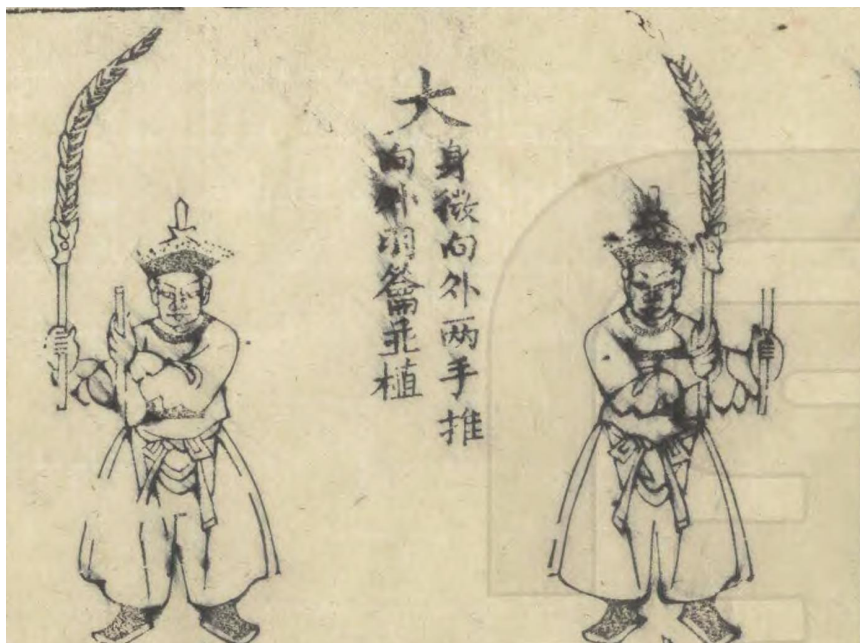 大
身微向外两手推
向外羽籥並植